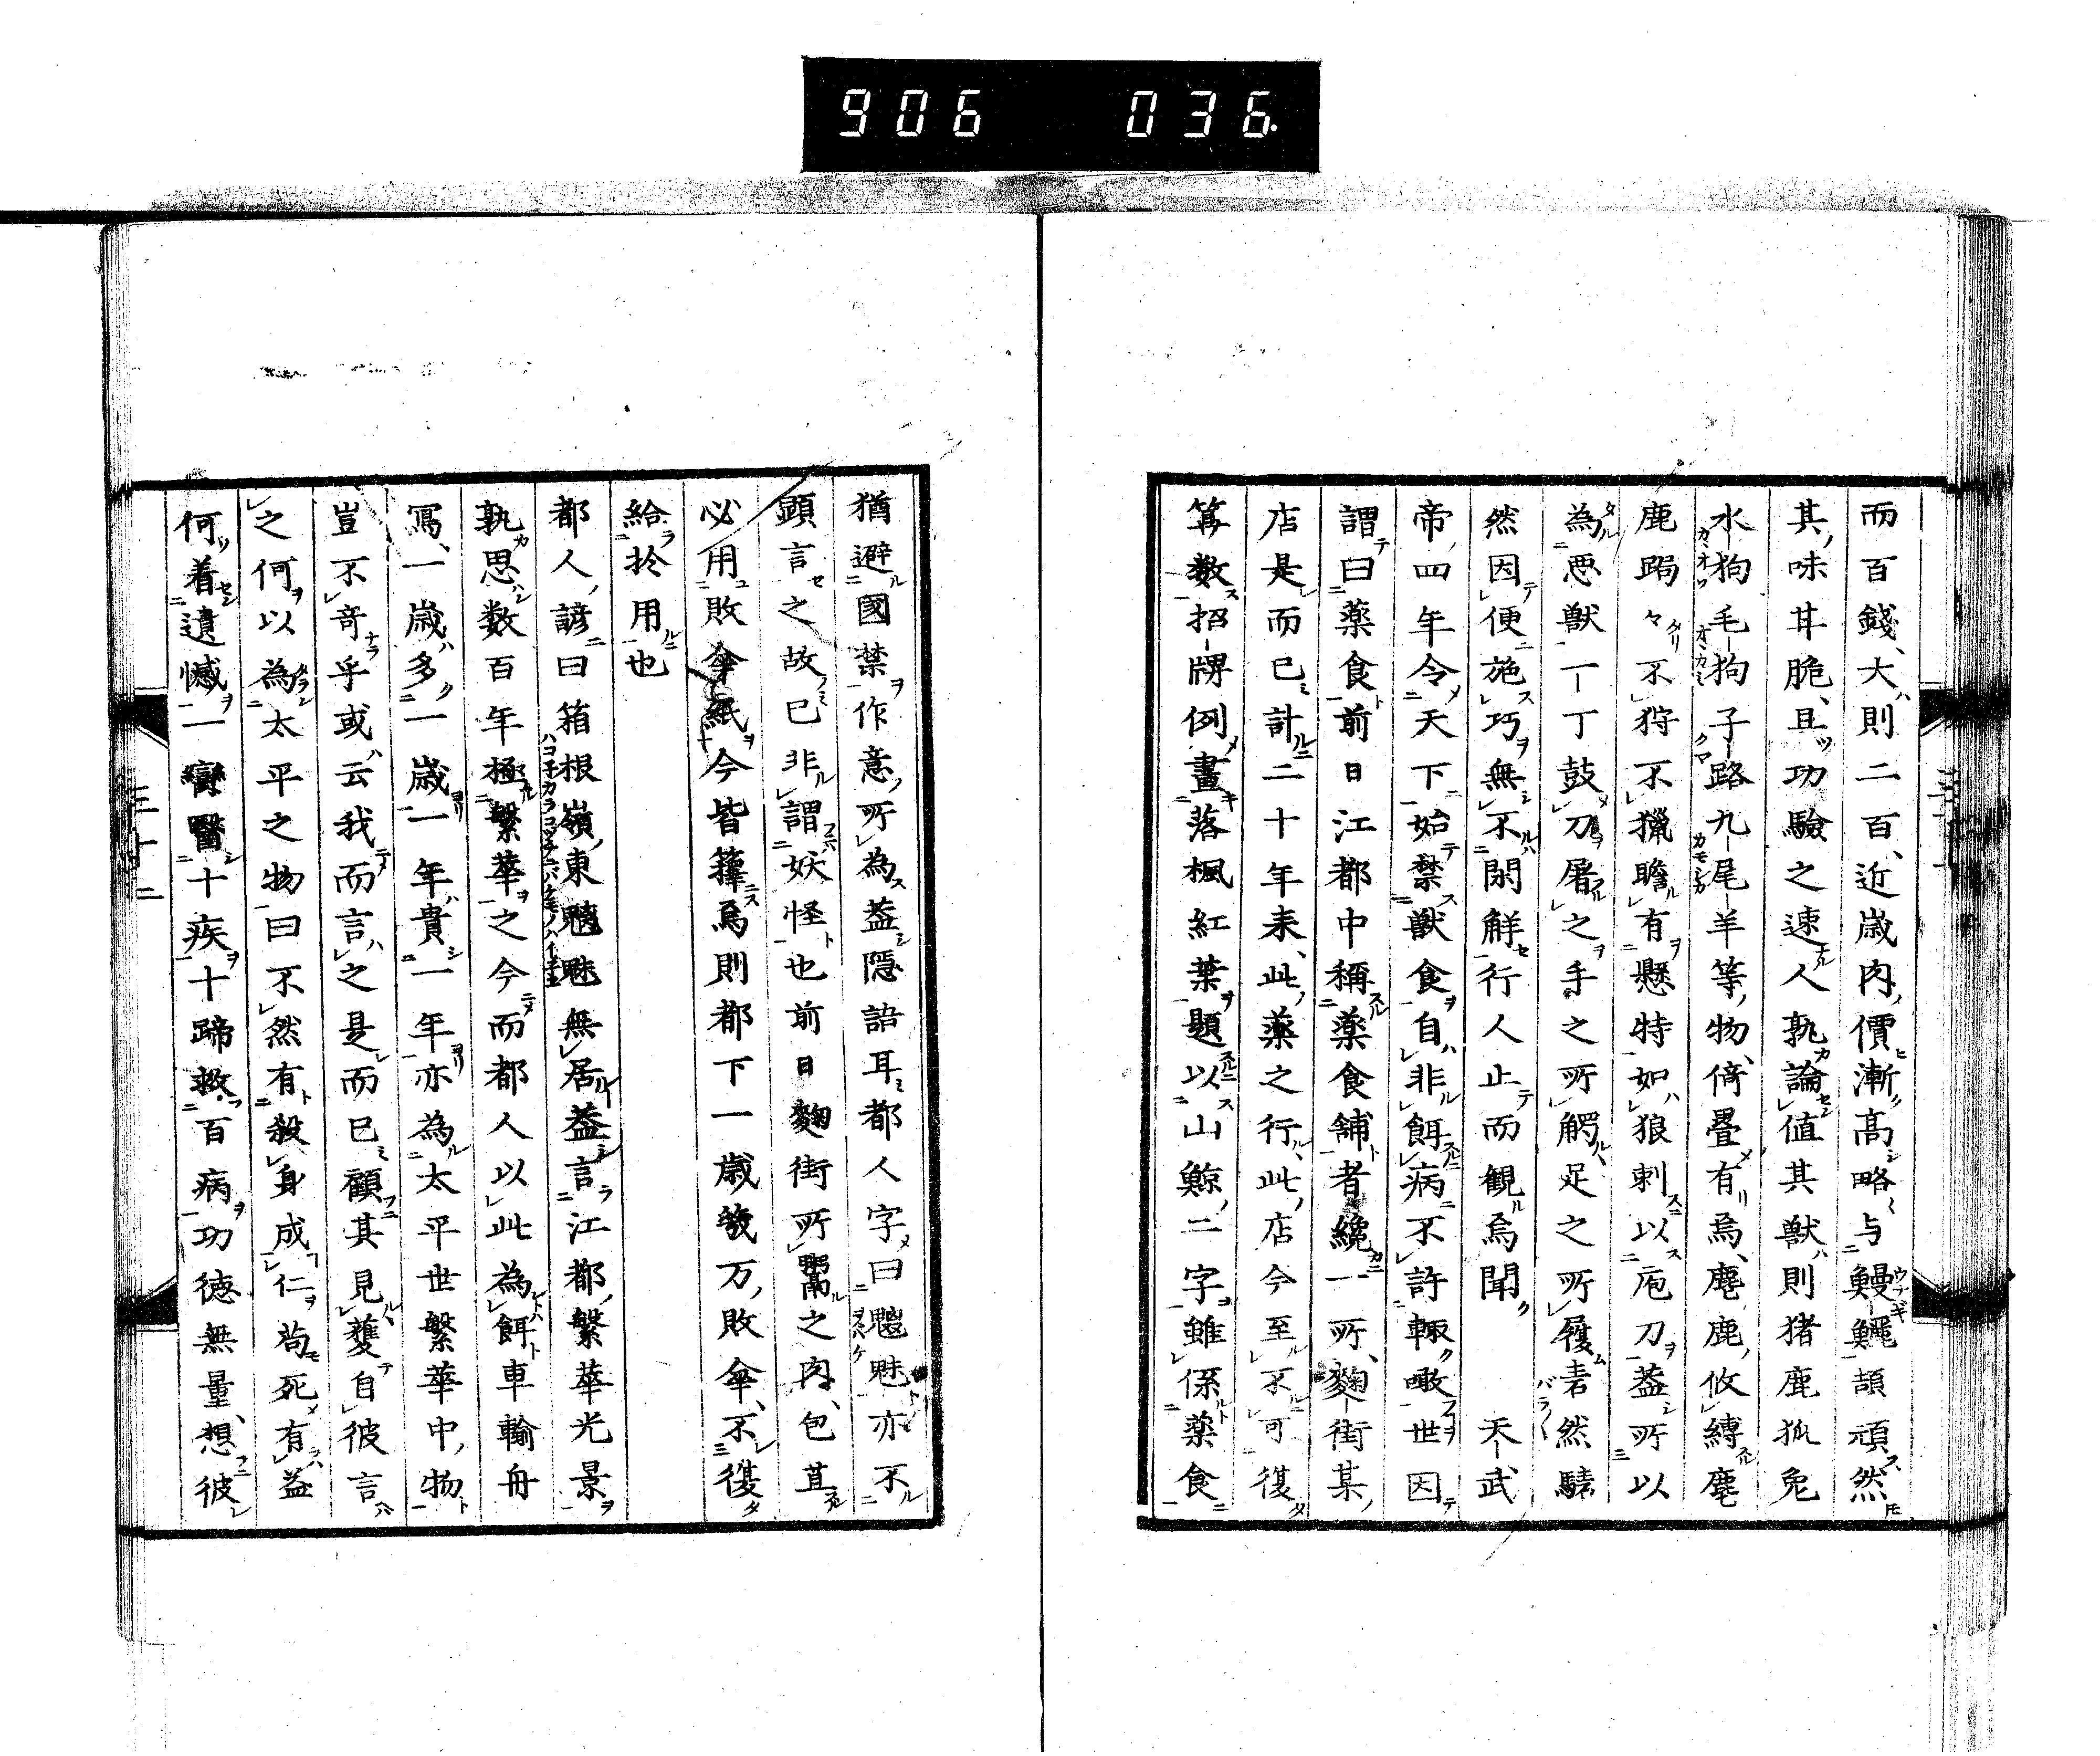 906 036
而百錢、大則二百、近歲肉價漸高、略与鰻鱺頡頏然
其味甘脆、且功驗之速人孰論値其獸則猪鹿狐兔
水狗毛狗子路九尾羊等物、倚疊有焉、麀鹿攸縛麀
鹿跼々不狩不獵瞻有懸特如狼剌以庖刀蓋所以
為悪獣一丁鼓刀屠之手之所觸足之所履砉然騞
然因便施巧無不閑觧行人止而観焉聞 天武
帝四年令天下始禁獣食自非餌病不許輙噉世因
謂曰薬食前日江都中稱薬食舗者纔一所、麴街某
店是而已計二十年来、此薬之行此店今至不可復
筭数招牌例畫落楓紅葉題以山鯨二字雖係薬食
猶避國禁作意所為蓋隱語耳都人字曰魑魅亦不
顕言之故已非謂妖怪也前日麴街所鬻之肉、包苴
必用敗傘紙今皆籜焉則都下一歳幾万敗傘、不復
給於用也
都人諺曰箱根嶺東魑魅無居蓋言江都繁華光景
孰思数百年極繁華之今而都人以此為餌車輪舟
寫、一歳多一歳一年貴一年亦為太平世繁華中物
豈不奇乎或云我而言之是而已顧其見獲自彼言
之何以為太平之物曰不然有殺身成仁苟死有益
何着遺憾一臠醫十疾十蹄救百病功徳無量、想彼
三十二